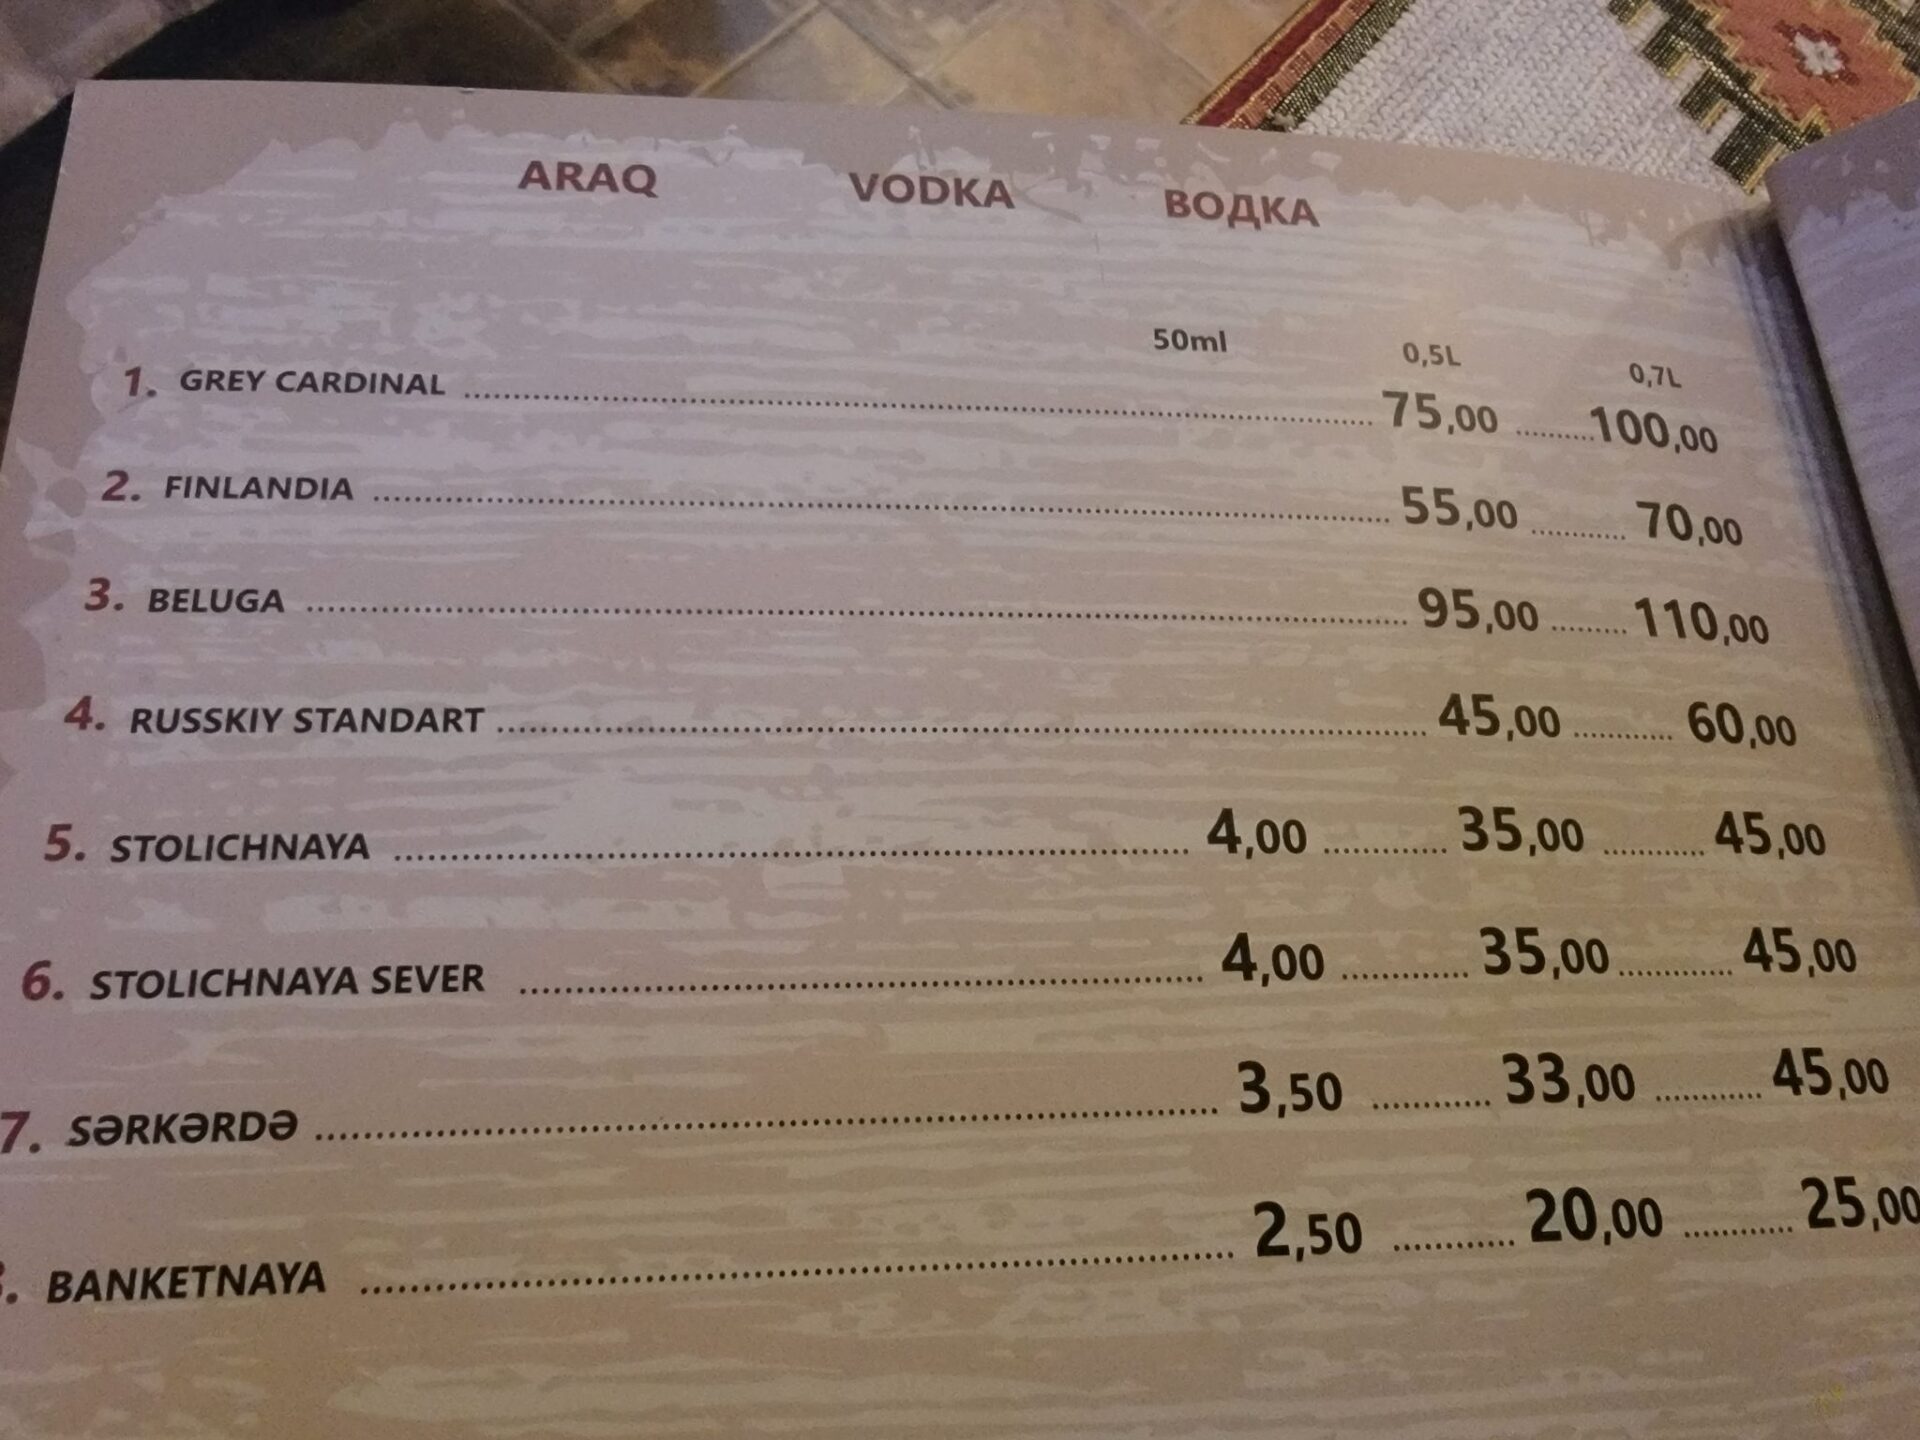 ARAQ VODKA ВОДКА
50ml 0,5L 0,7L
1. GREY CARDINAL 75,00 100,00
2. FINLANDIA 55,00 70,00
3. BELUGA 95,00 110,00
4. RUSSKIY STANDART 45,00 60,00
5. STOLICHNAYA 4,00 35,00 45,00
6. STOLICHNAYA SEVER 4,00 35,00 45,00
7. SƏRKƏRDƏ 3,50 33,00 45,00
8. BANKETNAYA 2,50 20,00 25,00